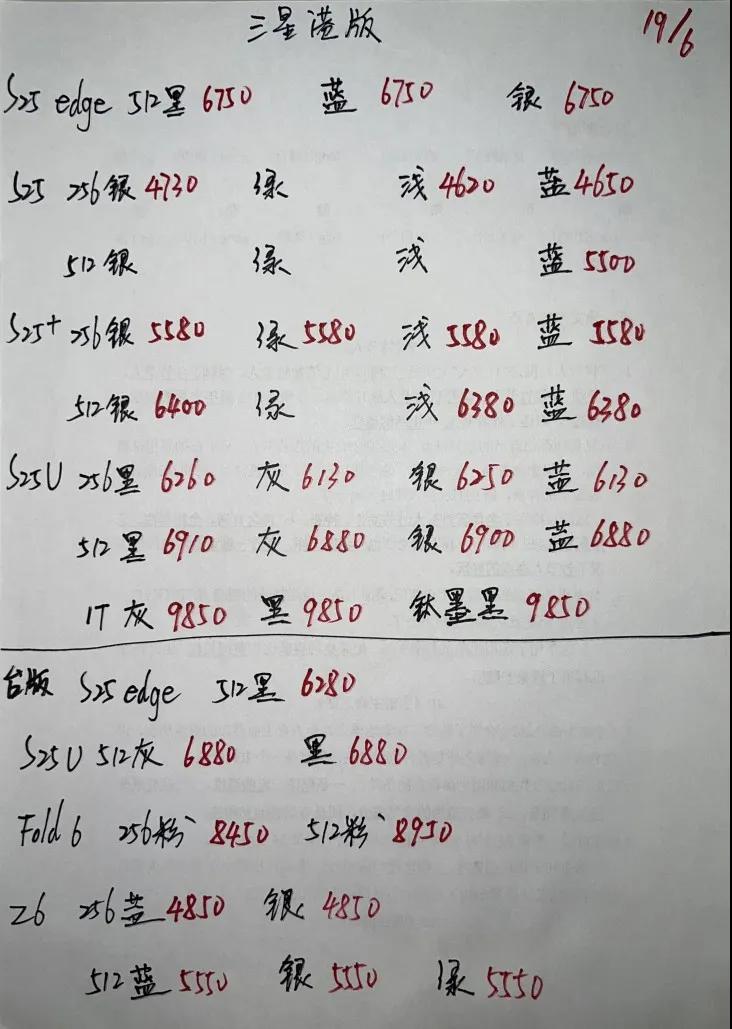 三星港版 19/6
S25 edge 512黑 6750 蓝 6750 银 6750
S25 256银 4730 绿 浅 4620 蓝 4650
512银 绿 浅 蓝 5500
S25+ 256银 5580 绿 5580 浅 5580 蓝 5580
512银 6400 绿 浅 6380 蓝 6380
S25U 256黑 6260 灰 6130 银 6250 蓝 6130
512黑 6910 灰 6880 银 6900 蓝 6880
1T 灰 9850 黑 9850 钛墨黑 9850
台版 S25 edge 512黑 6280
S25U 512灰 6880 黑 6880
Fold 6 256粉 8450 512粉 8950
Z6 256蓝 4850 银 4850
512蓝 5550 银 5550 绿 5550